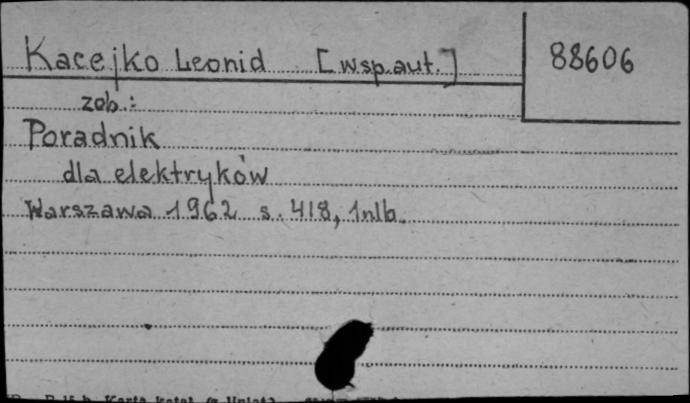 Kacejko Leonid [wsp.aut.] 88606
zob.:
Poradnik
dla elektryków
Warszawa 1962 s. 418, 1nlb.